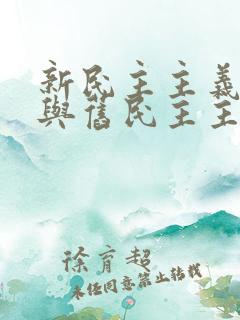 新民主主義
與舊民主主
徐育超
未经同意禁止转载